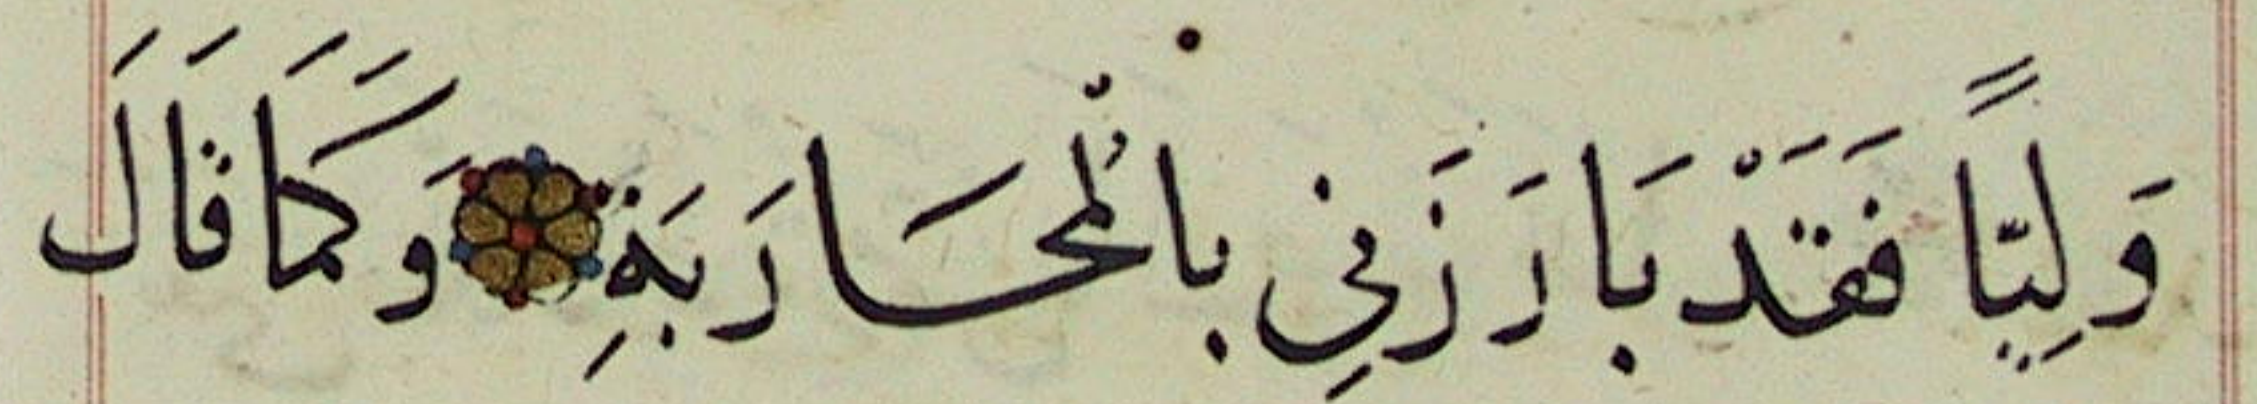 وَلِيًّا فَقَدْ بَارَزَنِي بالْمُحَارَبَةِ وَكَمَا قَالَ